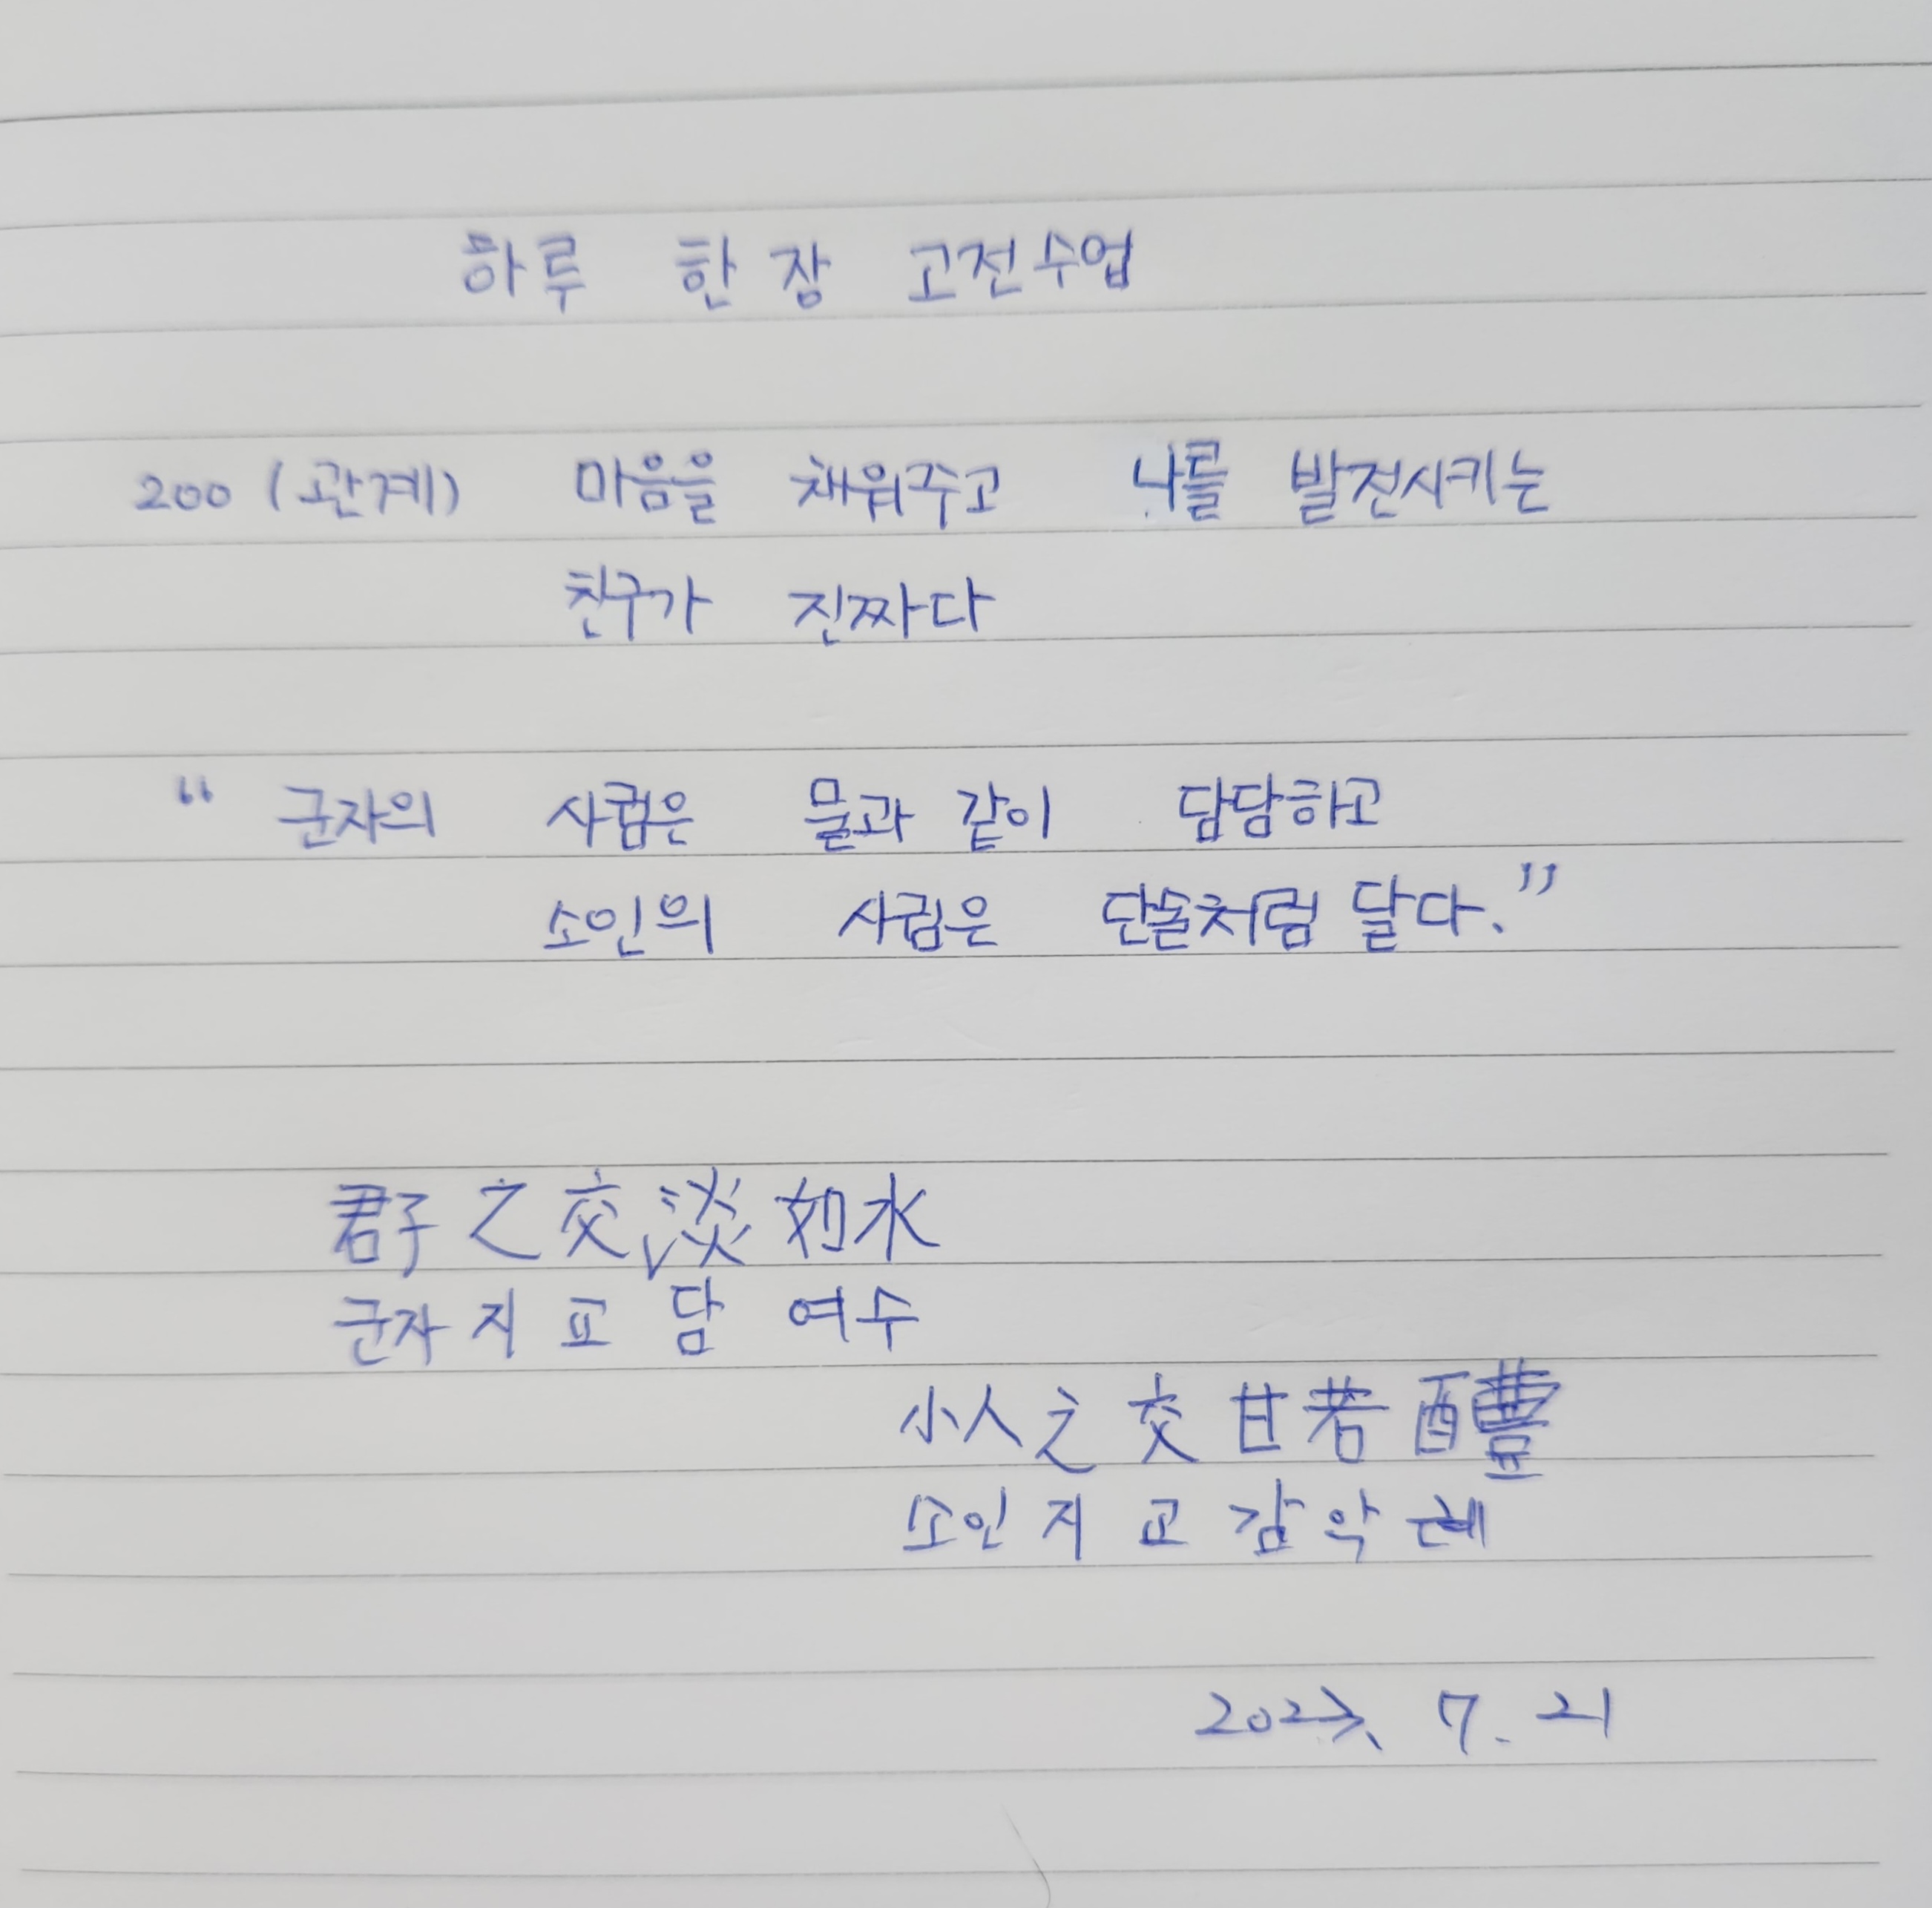 하루 한 장 고전수업
200 (관계) 마음을 채워주고 나를 발전시키는
친구가 진짜다
“ 군자의 사귐은 물과 같이 담담하고
소인의 사귐은 단술처럼 달다.”
君子之交淡如水
군자지교담여수
小人之交甘若醴
소인지교감약례
7. 21